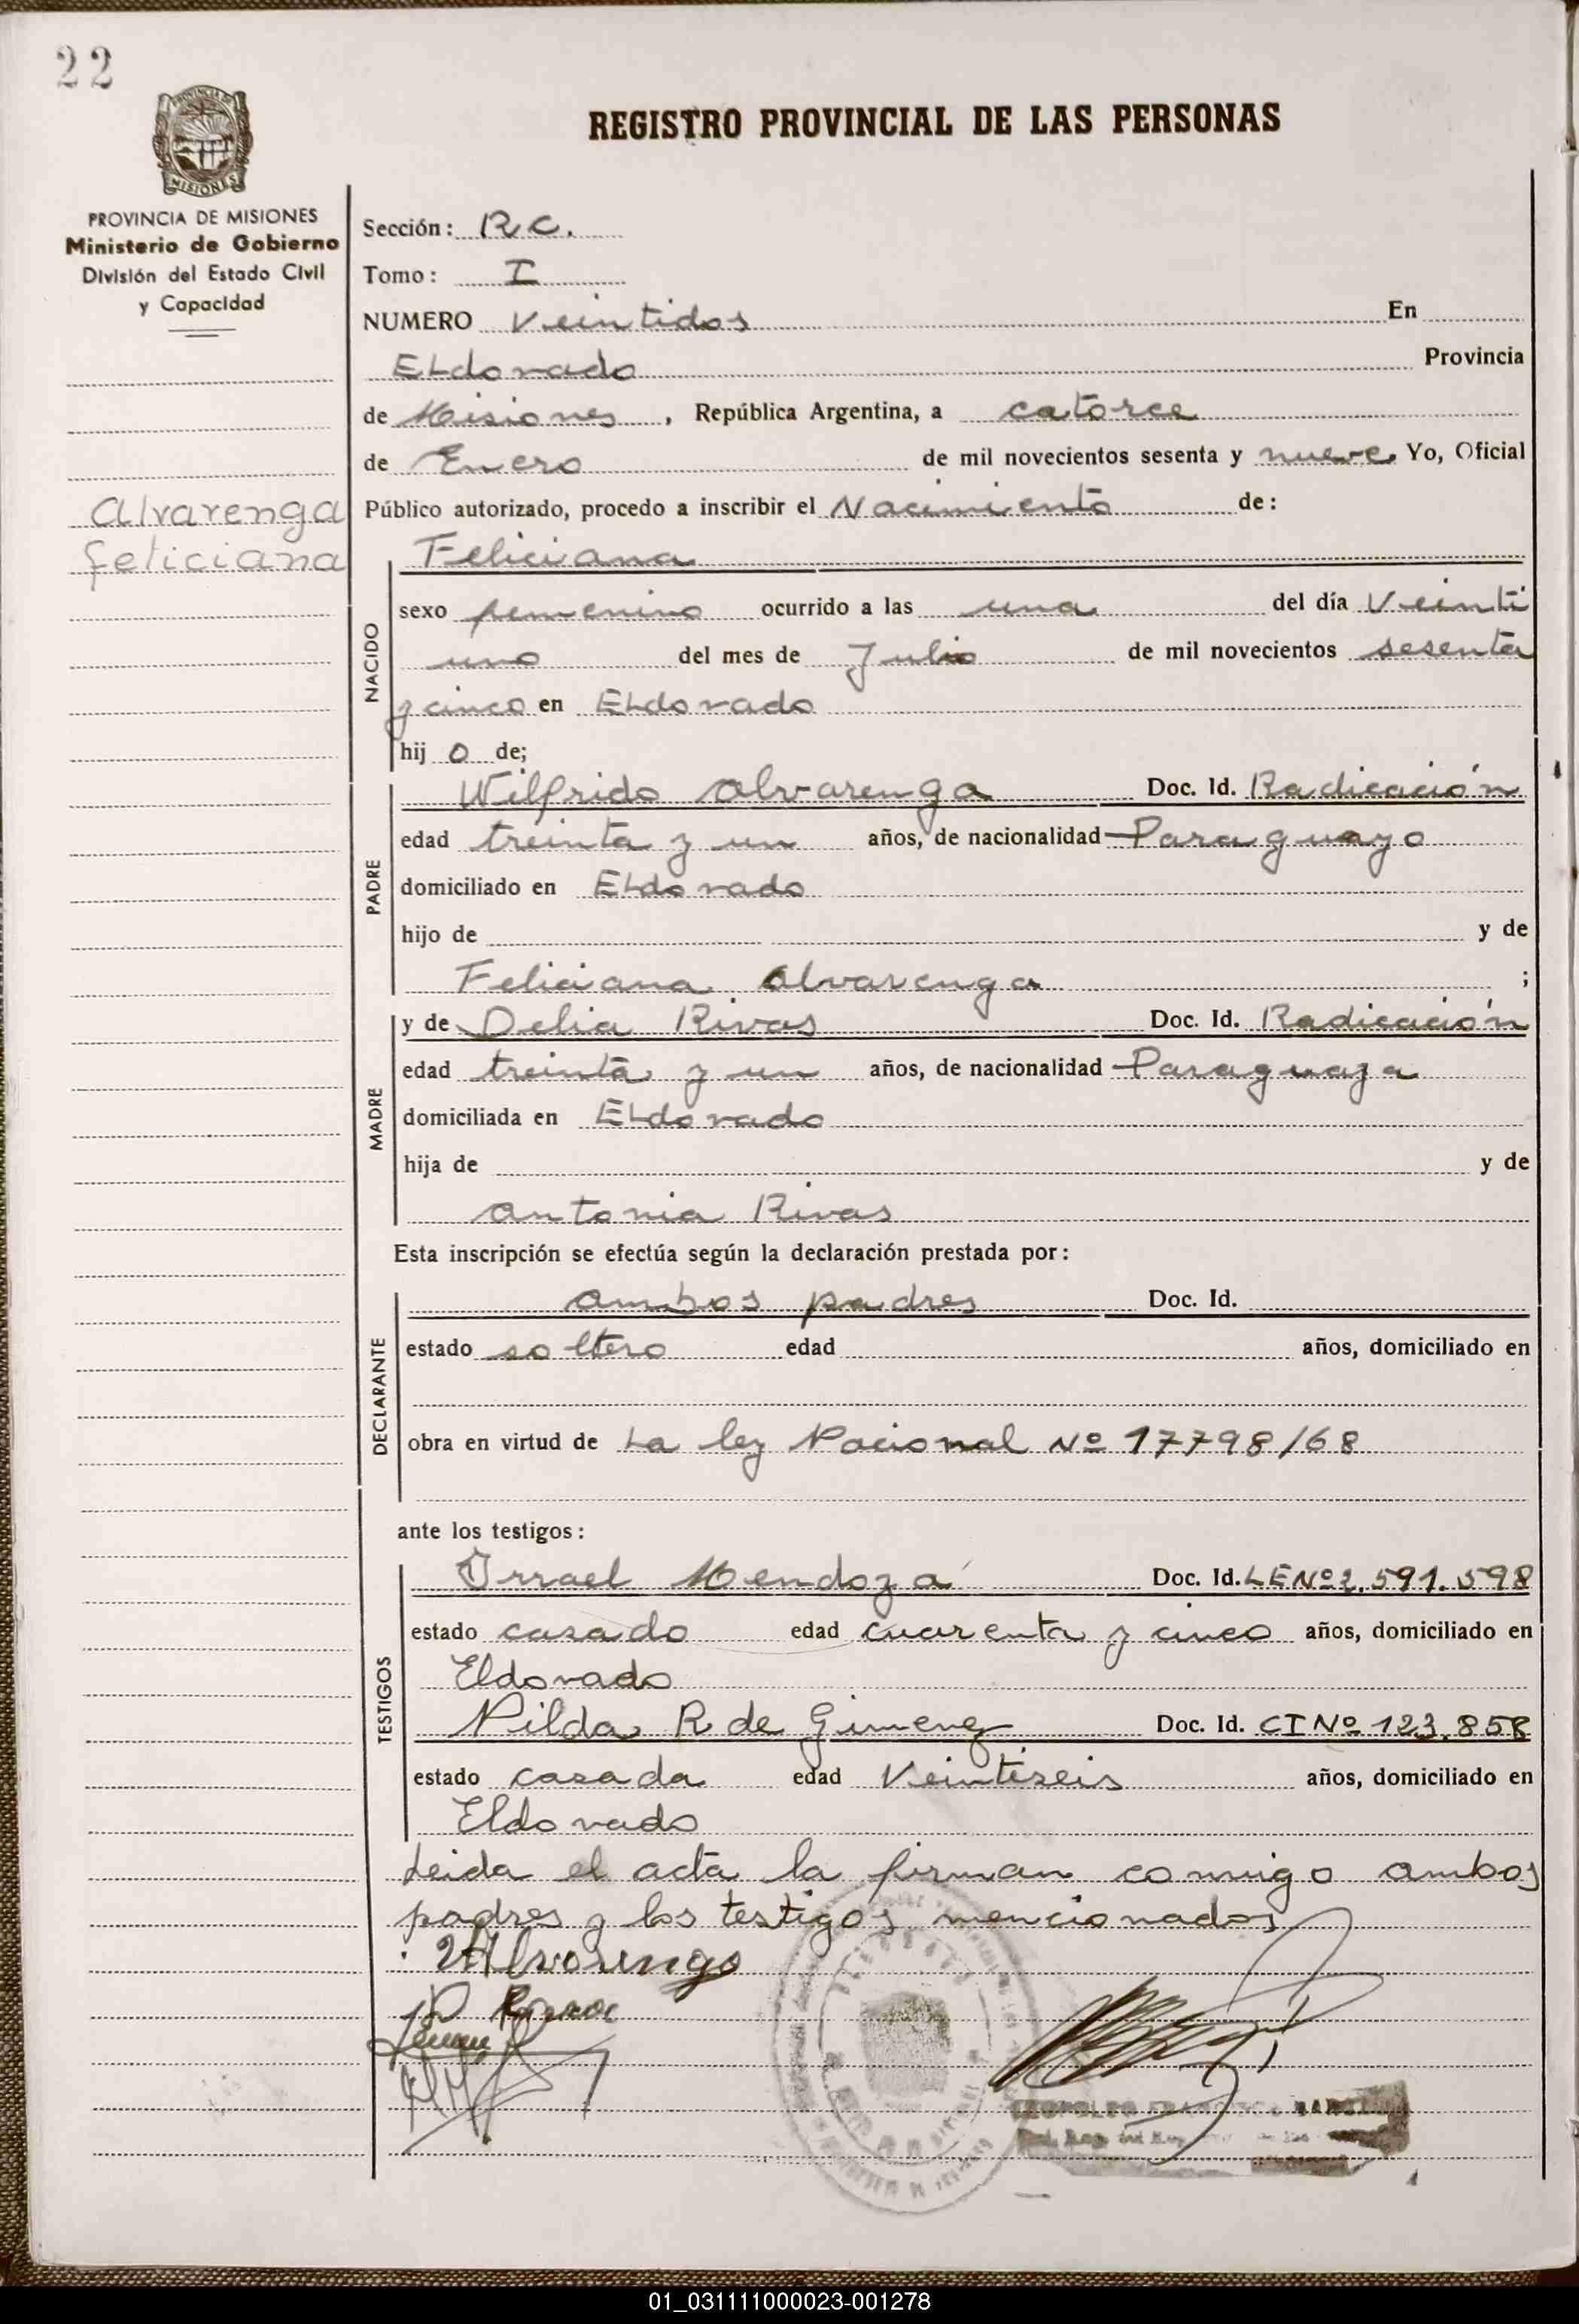 22
REGISTRO PROVINCIAL DE LAS PERSONAS
MISIONES
PROVINCIA DE MISIONES
Ministerio de Gobierno
División del Estado Civil
y Capacidad
Alvarenga
feliciana
Sección: R C.
Tomo: I
NUMERO Veintidos En
ELdorado Provincia
de Misiones, República Argentina, a catorce
de Enero de mil novecientos sesenta y nueve. Yo, Oficial
Público autorizado, procedo a inscribir el Nacimiento de:
NACIDO
Feliciana
sexo femenino ocurrido a las una del día Veinti
uno del mes de Julio de mil novecientos sesenta
y cinco en ELdorado
hij o de;
PADRE
Wilfrido Alvarenga Doc. Id. Radicación
edad treinta y un años, de nacionalidad Paraguayo
domiciliado en ELdorado
hijo de y de
Feliciana Alvarenga ;
MADRE
y de Delia Rivas Doc. Id. Radicación
edad treinta y un años, de nacionalidad Paraguaya
domiciliada en ELdorado
hija de y de
Antonia Rivas
Esta inscripción se efectúa según la declaración prestada por:
DECLARANTE
ambos padres Doc. Id.
estado soltero edad años, domiciliado en
obra en virtud de La ley Nacional Nº 17798/68
ante los testigos:
TESTIGOS
Israel Mendoza Doc. Id. LE Nº 2.591.598
estado casado edad cuarenta y cinco años, domiciliado en
Eldorado
Nilda R de Gimenez Doc. Id. CI Nº 123.858
estado casada edad Veintiseis años, domiciliado en
Eldorado
Leida el acta la firman conmigo ambos
padres y los testigos mencionados
Alvarenga
01_031111000023-001278